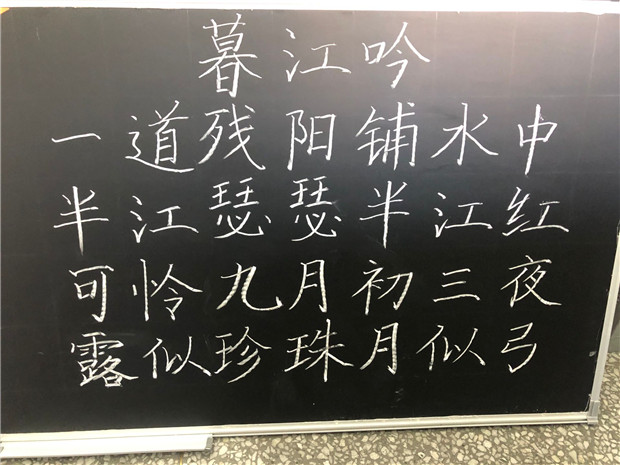 暮江吟
一道残阳铺水中
半江瑟瑟半江红
可怜九月初三夜
露似珍珠月似弓